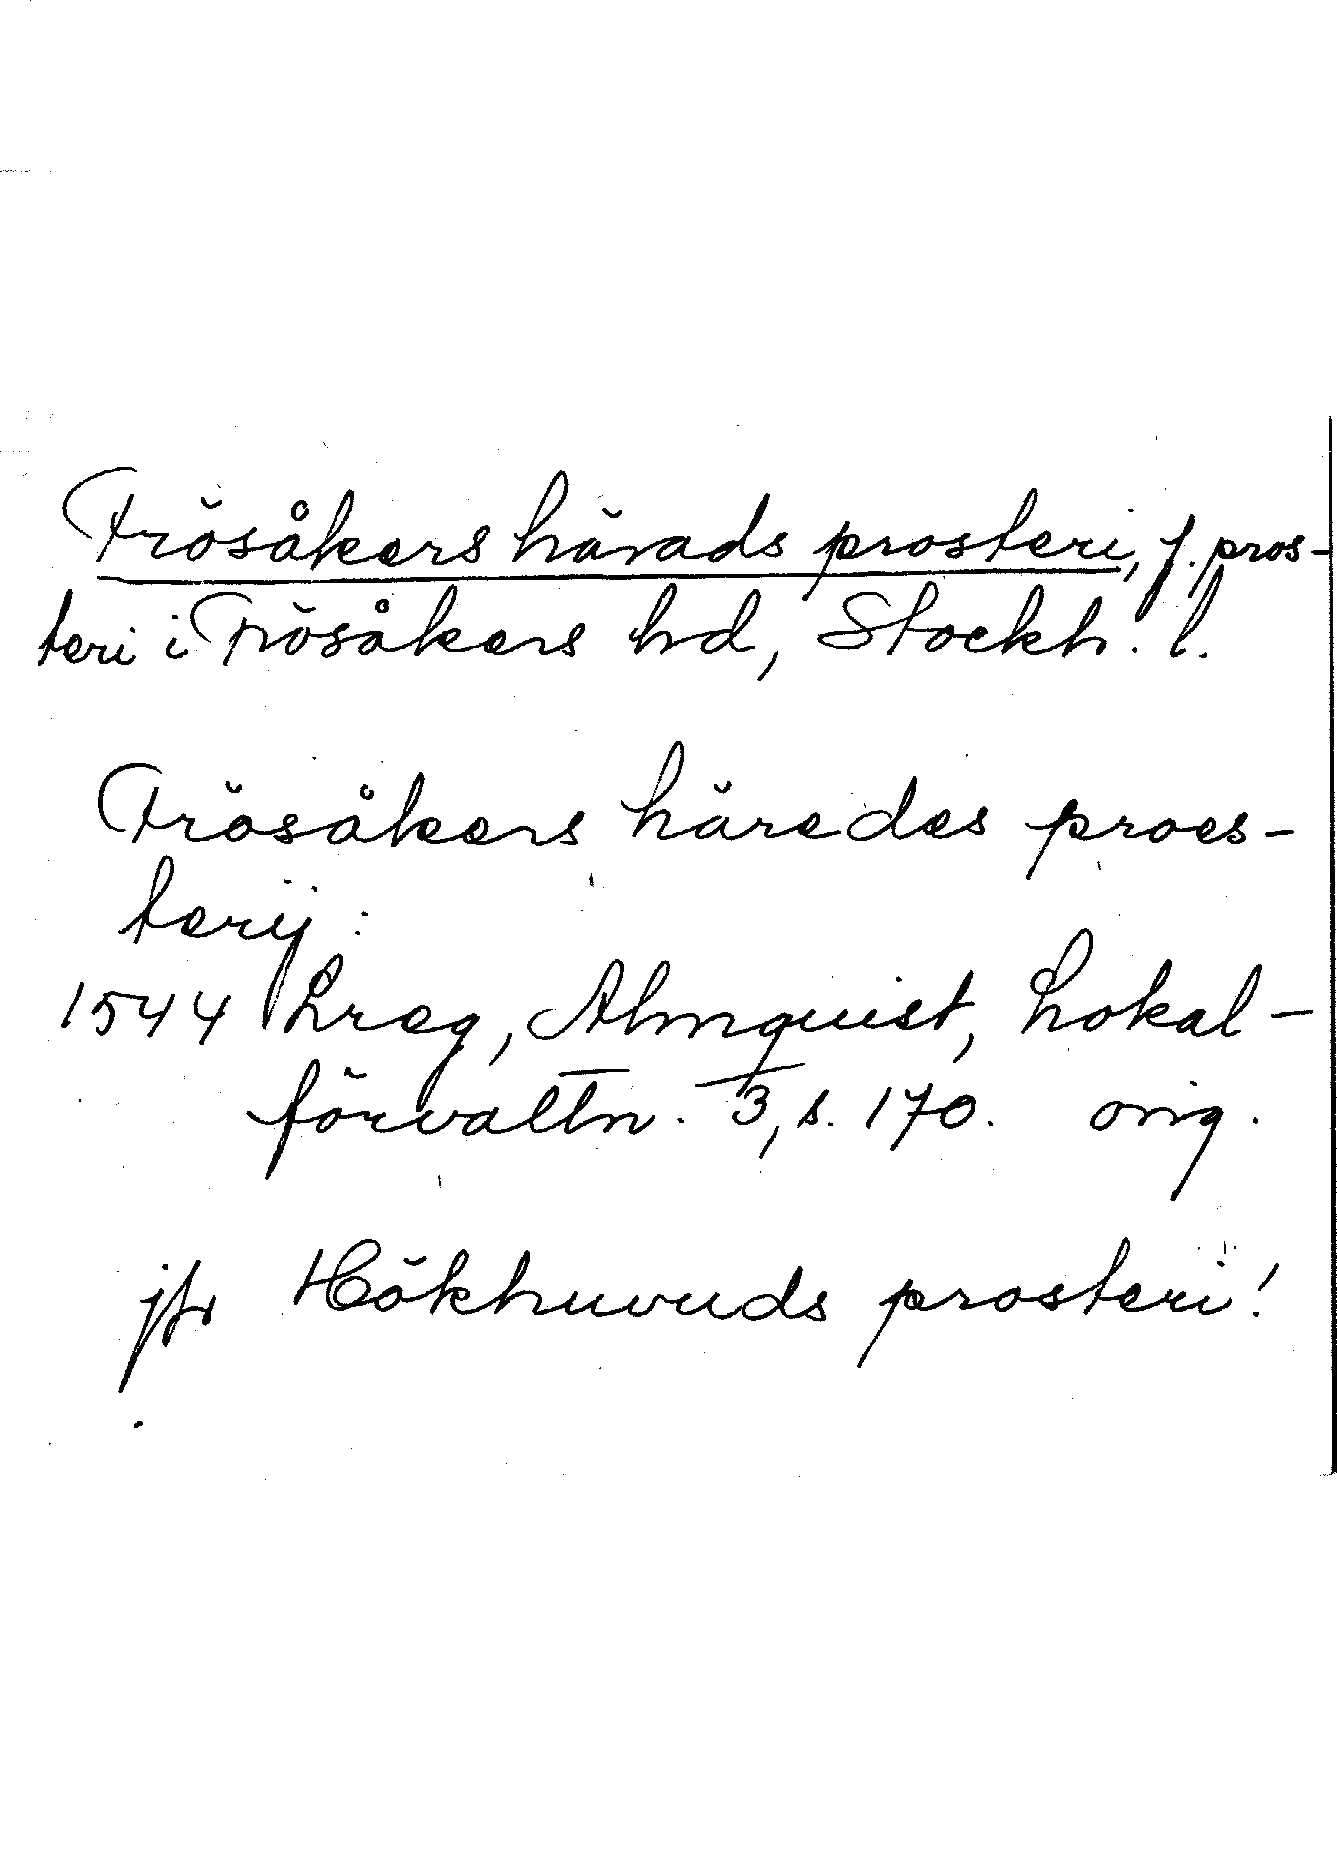 Frösåkers härads prosteri, f. pros-
teri i Frösåkers hd, Stockh. l.
Frösåkers häredes proes-
terij:
1544 Lreg, Almquist, Lokal-
förvaltn. 3, s. 170. orig.
jfr Hökhuvuds prosteri!